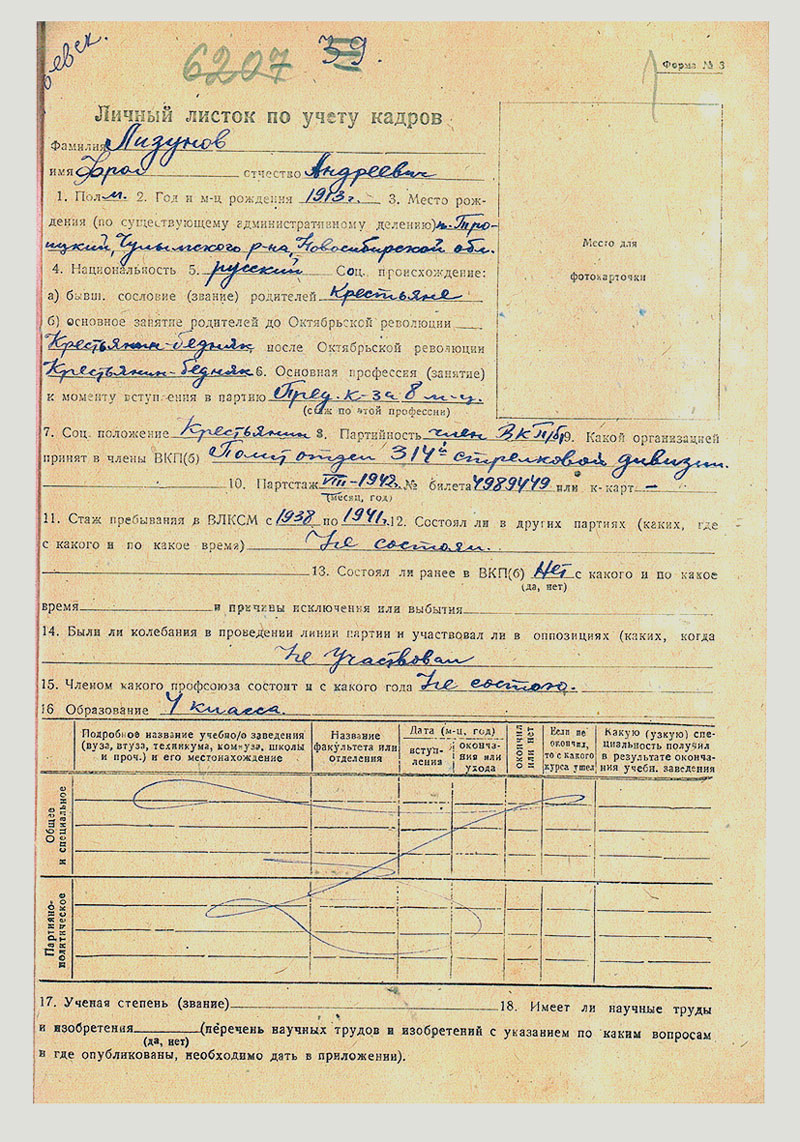 6207 39.
Форма № 3
Личный листок по учету кадров
Фамилия Лизунов
имя Фрол отчество Андреевич
1. Пол м. 2. Год и м-ц рождения 1913 г. 3. Место рож-
дения (по существующему административному делению) п. Тро-
ицкий, Чулымского р-на, Новосибирской обл.
4. Национальность 5. русский Соц. происхождение:
а) бывш. сословие (звание) родителей Крестьяне
б) основное занятие родителей до Октябрьской революции
Крестьянин-бедняк после Октябрьской революции
Крестьянин-бедняк 6. Основная профессия (занятие)
к моменту вступления в партию Пред. к-за 8 м-ц.
(стаж по этой профессии)
Место для
фотокарточки
7. Соц. положение Крестьянин 8. Партийность член ВКП/б/ 9. Какой организацией
принят в члены ВКП(б) Полит отдел 314й стрелковой дивизии.
10. Партстаж VIII-1942. № билета 4989449 или к-карт —
(месяц, год)
11. Стаж пребывания в ВЛКСМ с 1938 по 1941 г. 12. Состоял ли в других партиях (каких, где
с какого и по какое время) Не состоял.
13. Состоял ли ранее в ВКП(б) Нет с какого и по какое
(да, нет)
время и причины исключения или выбытия
14. Были ли колебания в проведении линии партии и участвовал ли в оппозициях (каких, когда
Не участвовал
15. Членом какого профсоюза состоит и с какого года Не состою.
16 Образование 4 класса.
Подробное название учебно/о заведения
(вуза, втуза, техникума, комвуза, школы
и проч.) и его местонахождение
Название
факультета или
отделения
Дата (м-ц, год)
вступ-
ления
оконча-
ния или
ухода
окончил
или нет
Если не
окончил,
то с какого
курса ушел
Какую (узкую) спе-
циальность получил
в результате оконча-
ния учебн. заведения
Общее
и специальное
Партийно-
политическое
17. Ученая степень (звание) 18. Имеет ли научные труды
и изобретения (перечень научных трудов и изобретений с указанием по каким вопросам
(да, нет)
и где опубликованы, необходимо дать в приложении).